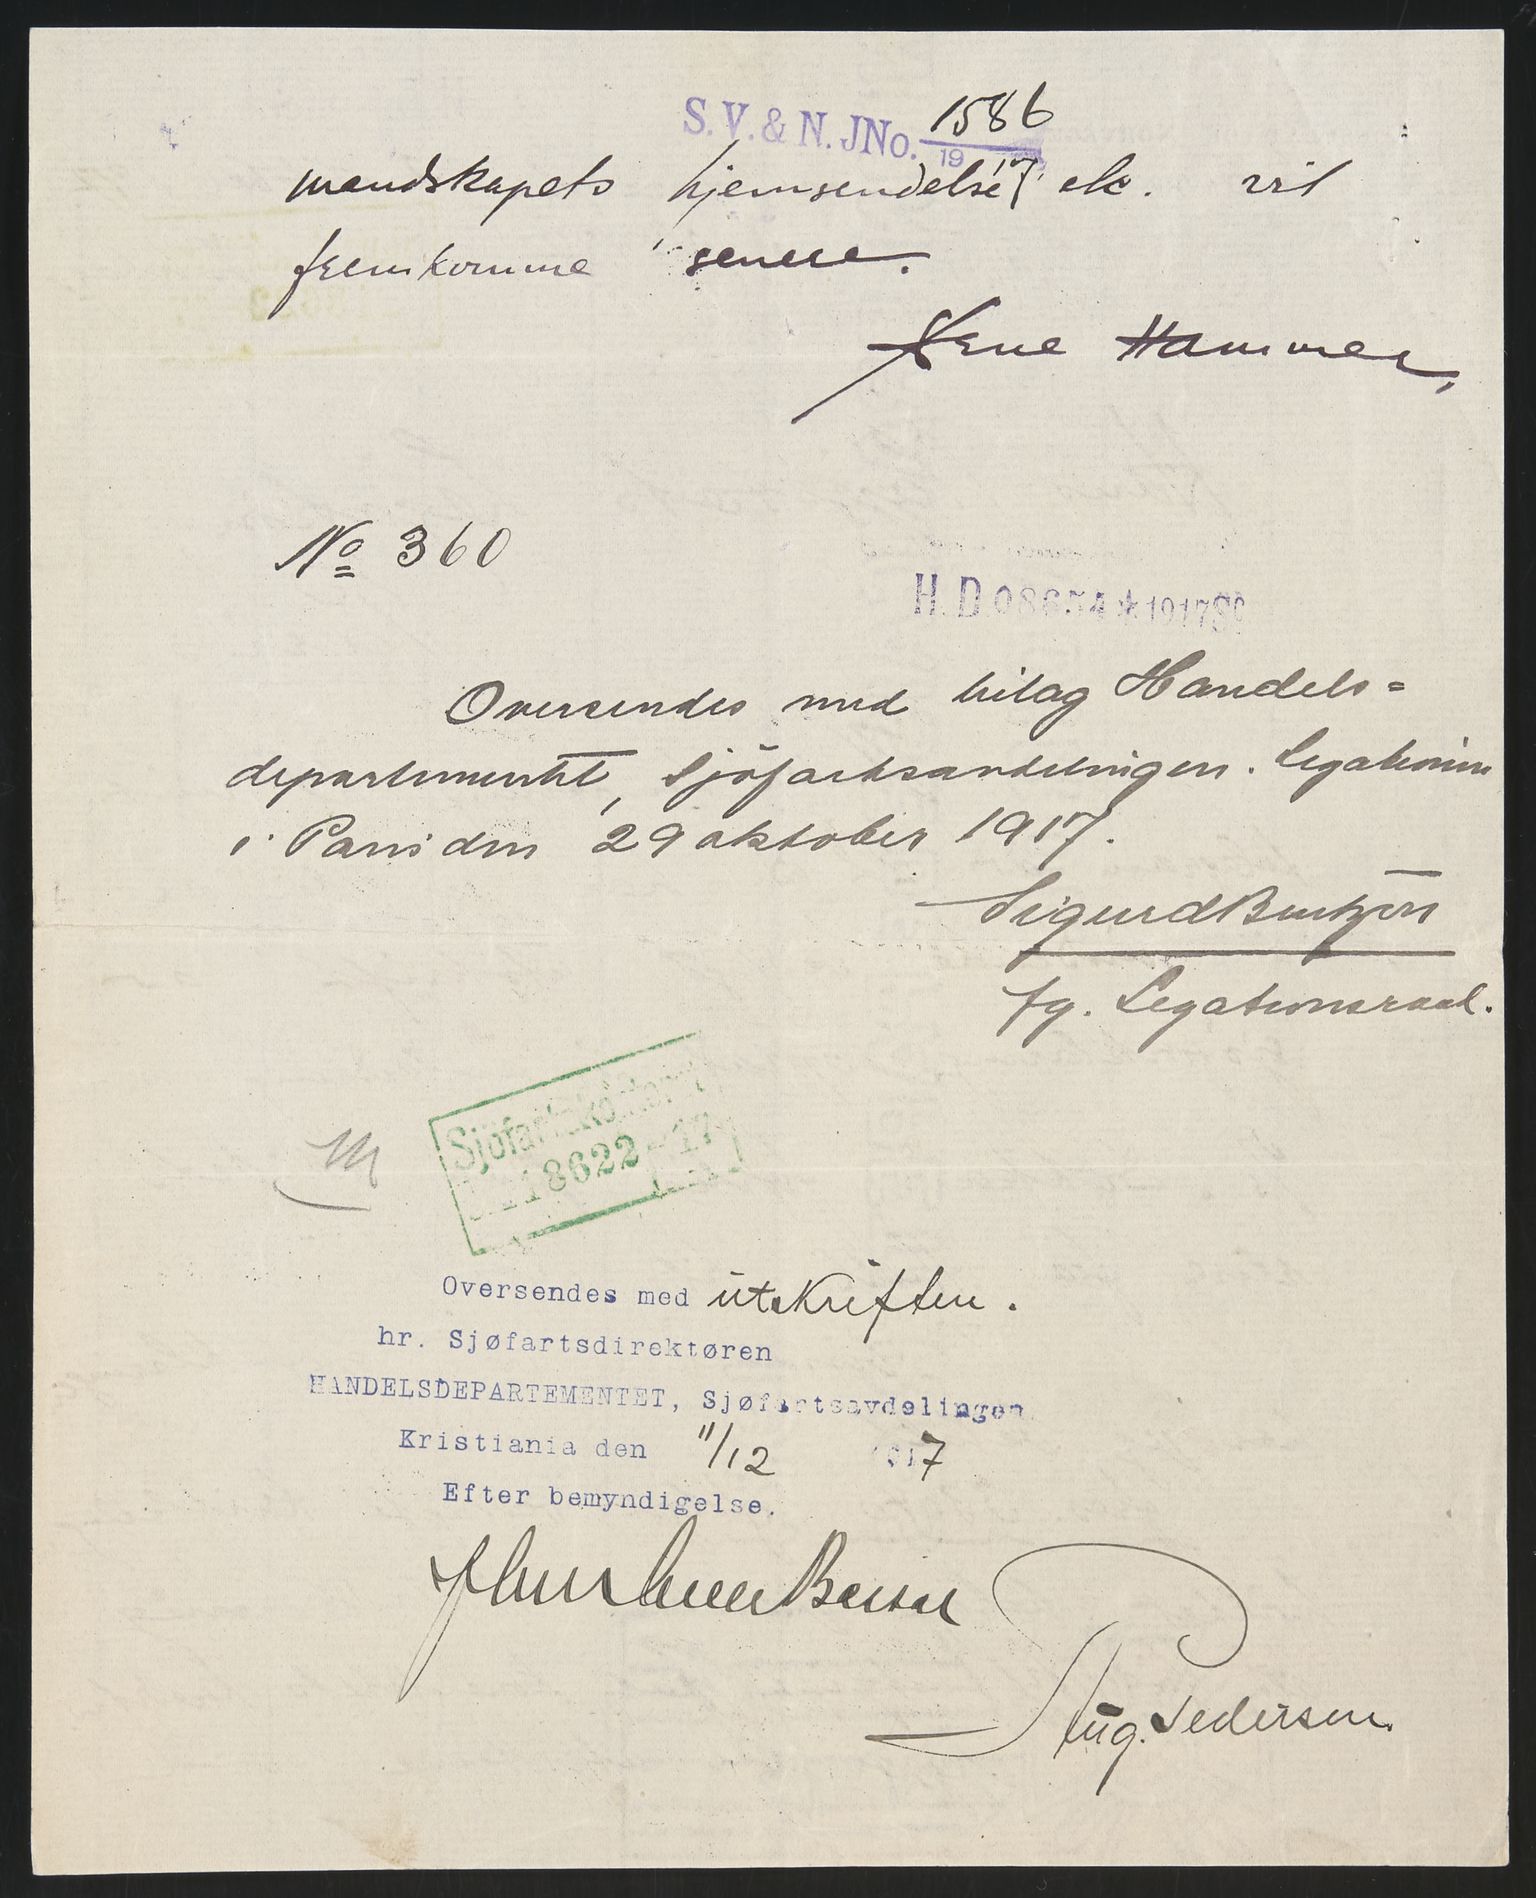 S. V. & N. JNo. 1586
19 17
mandskapets hjemsendelse etc. vil
fremkomme senere.
Arne Hammer,
No 360
H. D. 08654 * 1917 S
Oversendes med bilag Handels=
departementet, Sjöfartsavdelingen. Legationen
i Paris den 29 oktober 1917.
Sigurd Bentzon
fg. Legationsraad.
Sjøfartskontoret
18622 17
Oversendes med utskriften.
hr. Sjøfartsdirektøren
HANDELSDEPARTEMENTET, Sjøfartsavdelingen
Kristiania den 11/12 1917
Efter bemyndigelse.
Aug. Pedersen.